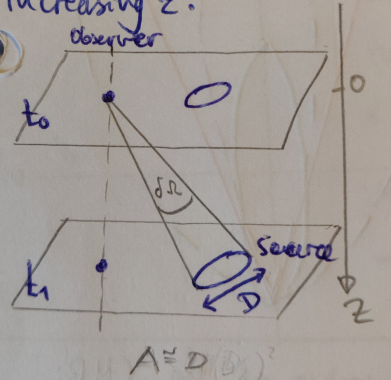 increasing z.
observer
0
t₀
δΩ
Source
t₁
D
z
A ≅ D